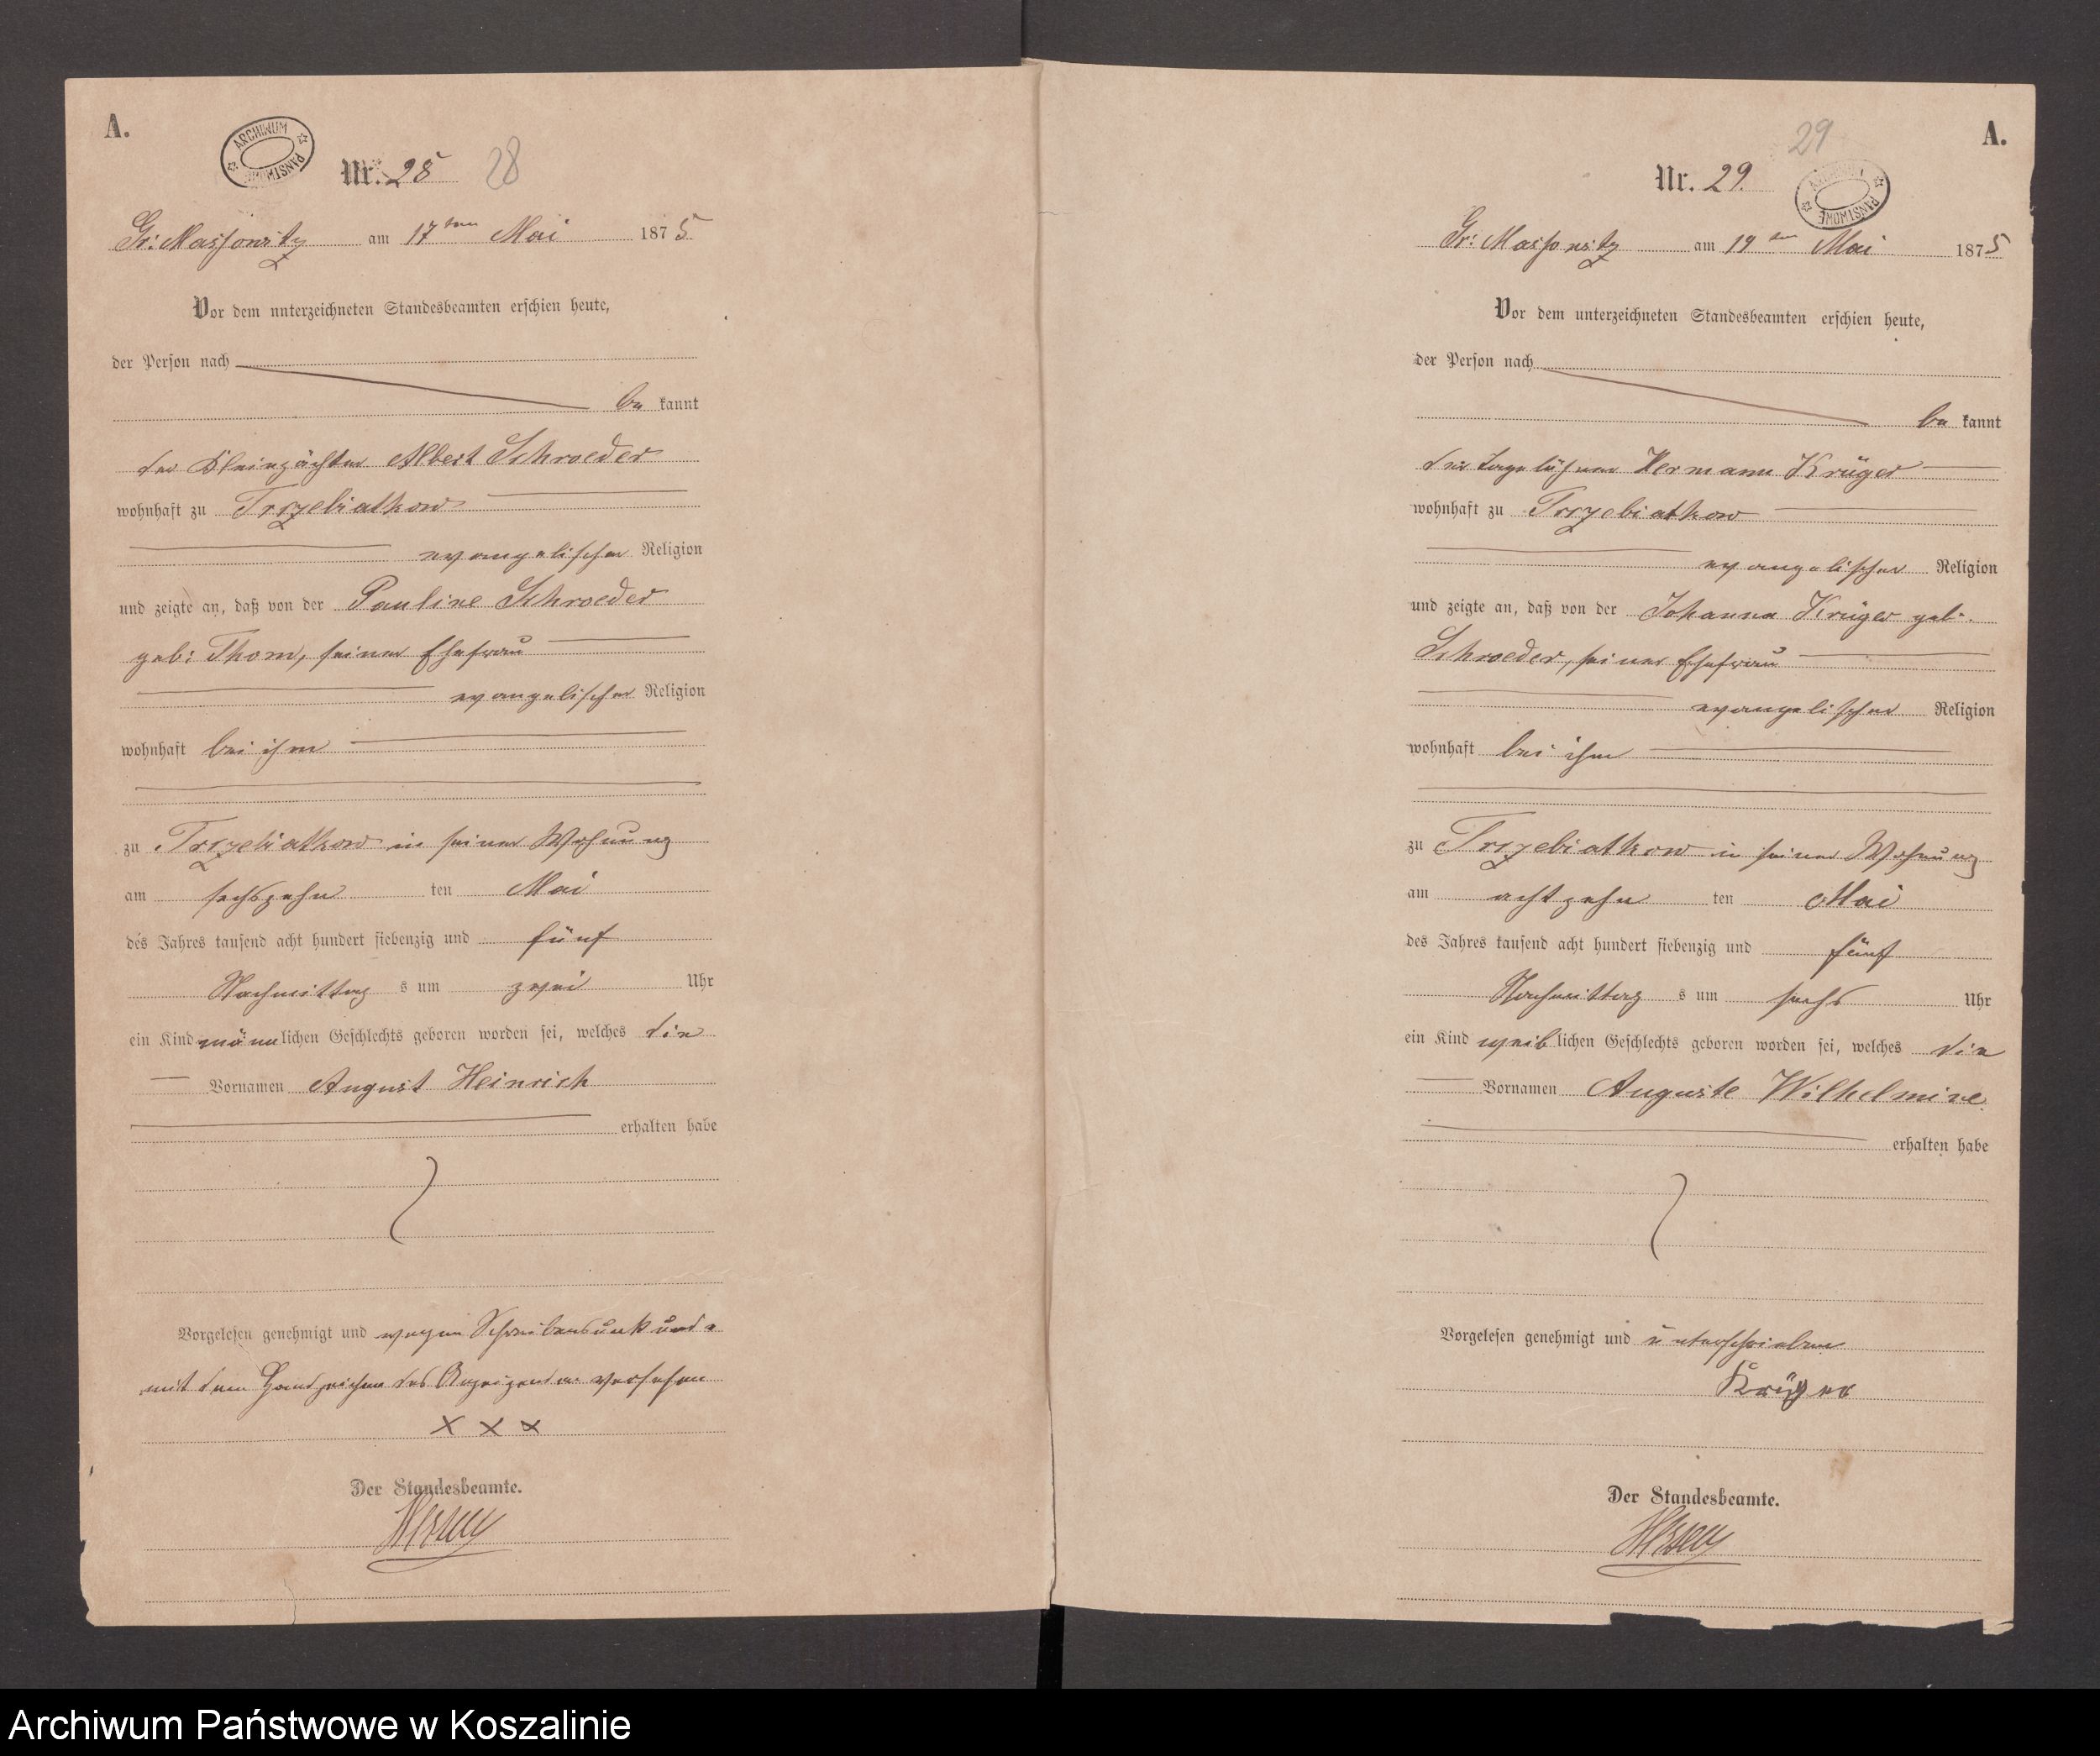 A.
ARCHIWUM PAŃSTWOWE
Nr. 28 28
Gr: Massowitz am 17ten Mai 1875
Vor dem unterzeichneten Standesbeamten erschien heute,
der Person nach
be kannt
der Kleinpächter Albert Schroeder
wohnhaft zu Trzebiatkow
evangelischer Religion
und zeigte an, daß von der Pauline Schroeder
geb: Thom, seiner Ehefrau
evangelischer Religion
wohnhaft bei ihm
zu Trzebiatkow in seiner Wohnung
am sechszehn ten Mai
des Jahres tausend acht hundert siebenzig und fünf
Nachmittag s um zwei Uhr
ein Kind männlichen Geschlechts geboren worden sei, welches die
Vornamen August Heinrich
erhalten habe
Vorgelesen genehmigt und wegen Schreibensunkunde
mit dem Handzeichen des Anzeigenden versehen
X X X
Der Standesbeamte.
A.
29
Nr. 29.
ARCHIWUM PAŃSTWOWE
Gr: Massowitz am 19ten Mai 1875
Vor dem unterzeichneten Standesbeamten erschien heute,
der Person nach
be kannt
der Tagelöhner Hermann Krüger
wohnhaft zu Trzebiatkow
evangelischer Religion
und zeigte an, daß von der Johanna Krüger geb.
Schroeder, seiner Ehefrau
evangelischer Religion
wohnhaft bei ihm
zu Trzebiatkow in seiner Wohnung
am achtzehn ten Mai
des Jahres tausend acht hundert siebenzig und fünf
Nachmittag s um sechs Uhr
ein Kind weiblichen Geschlechts geboren worden sei, welches die
Vornamen Auguste Wilhelmine
erhalten habe
Vorgelesen genehmigt und unterschrieben
Krüger
Der Standesbeamte.
Archiwum Państwowe w Koszalinie